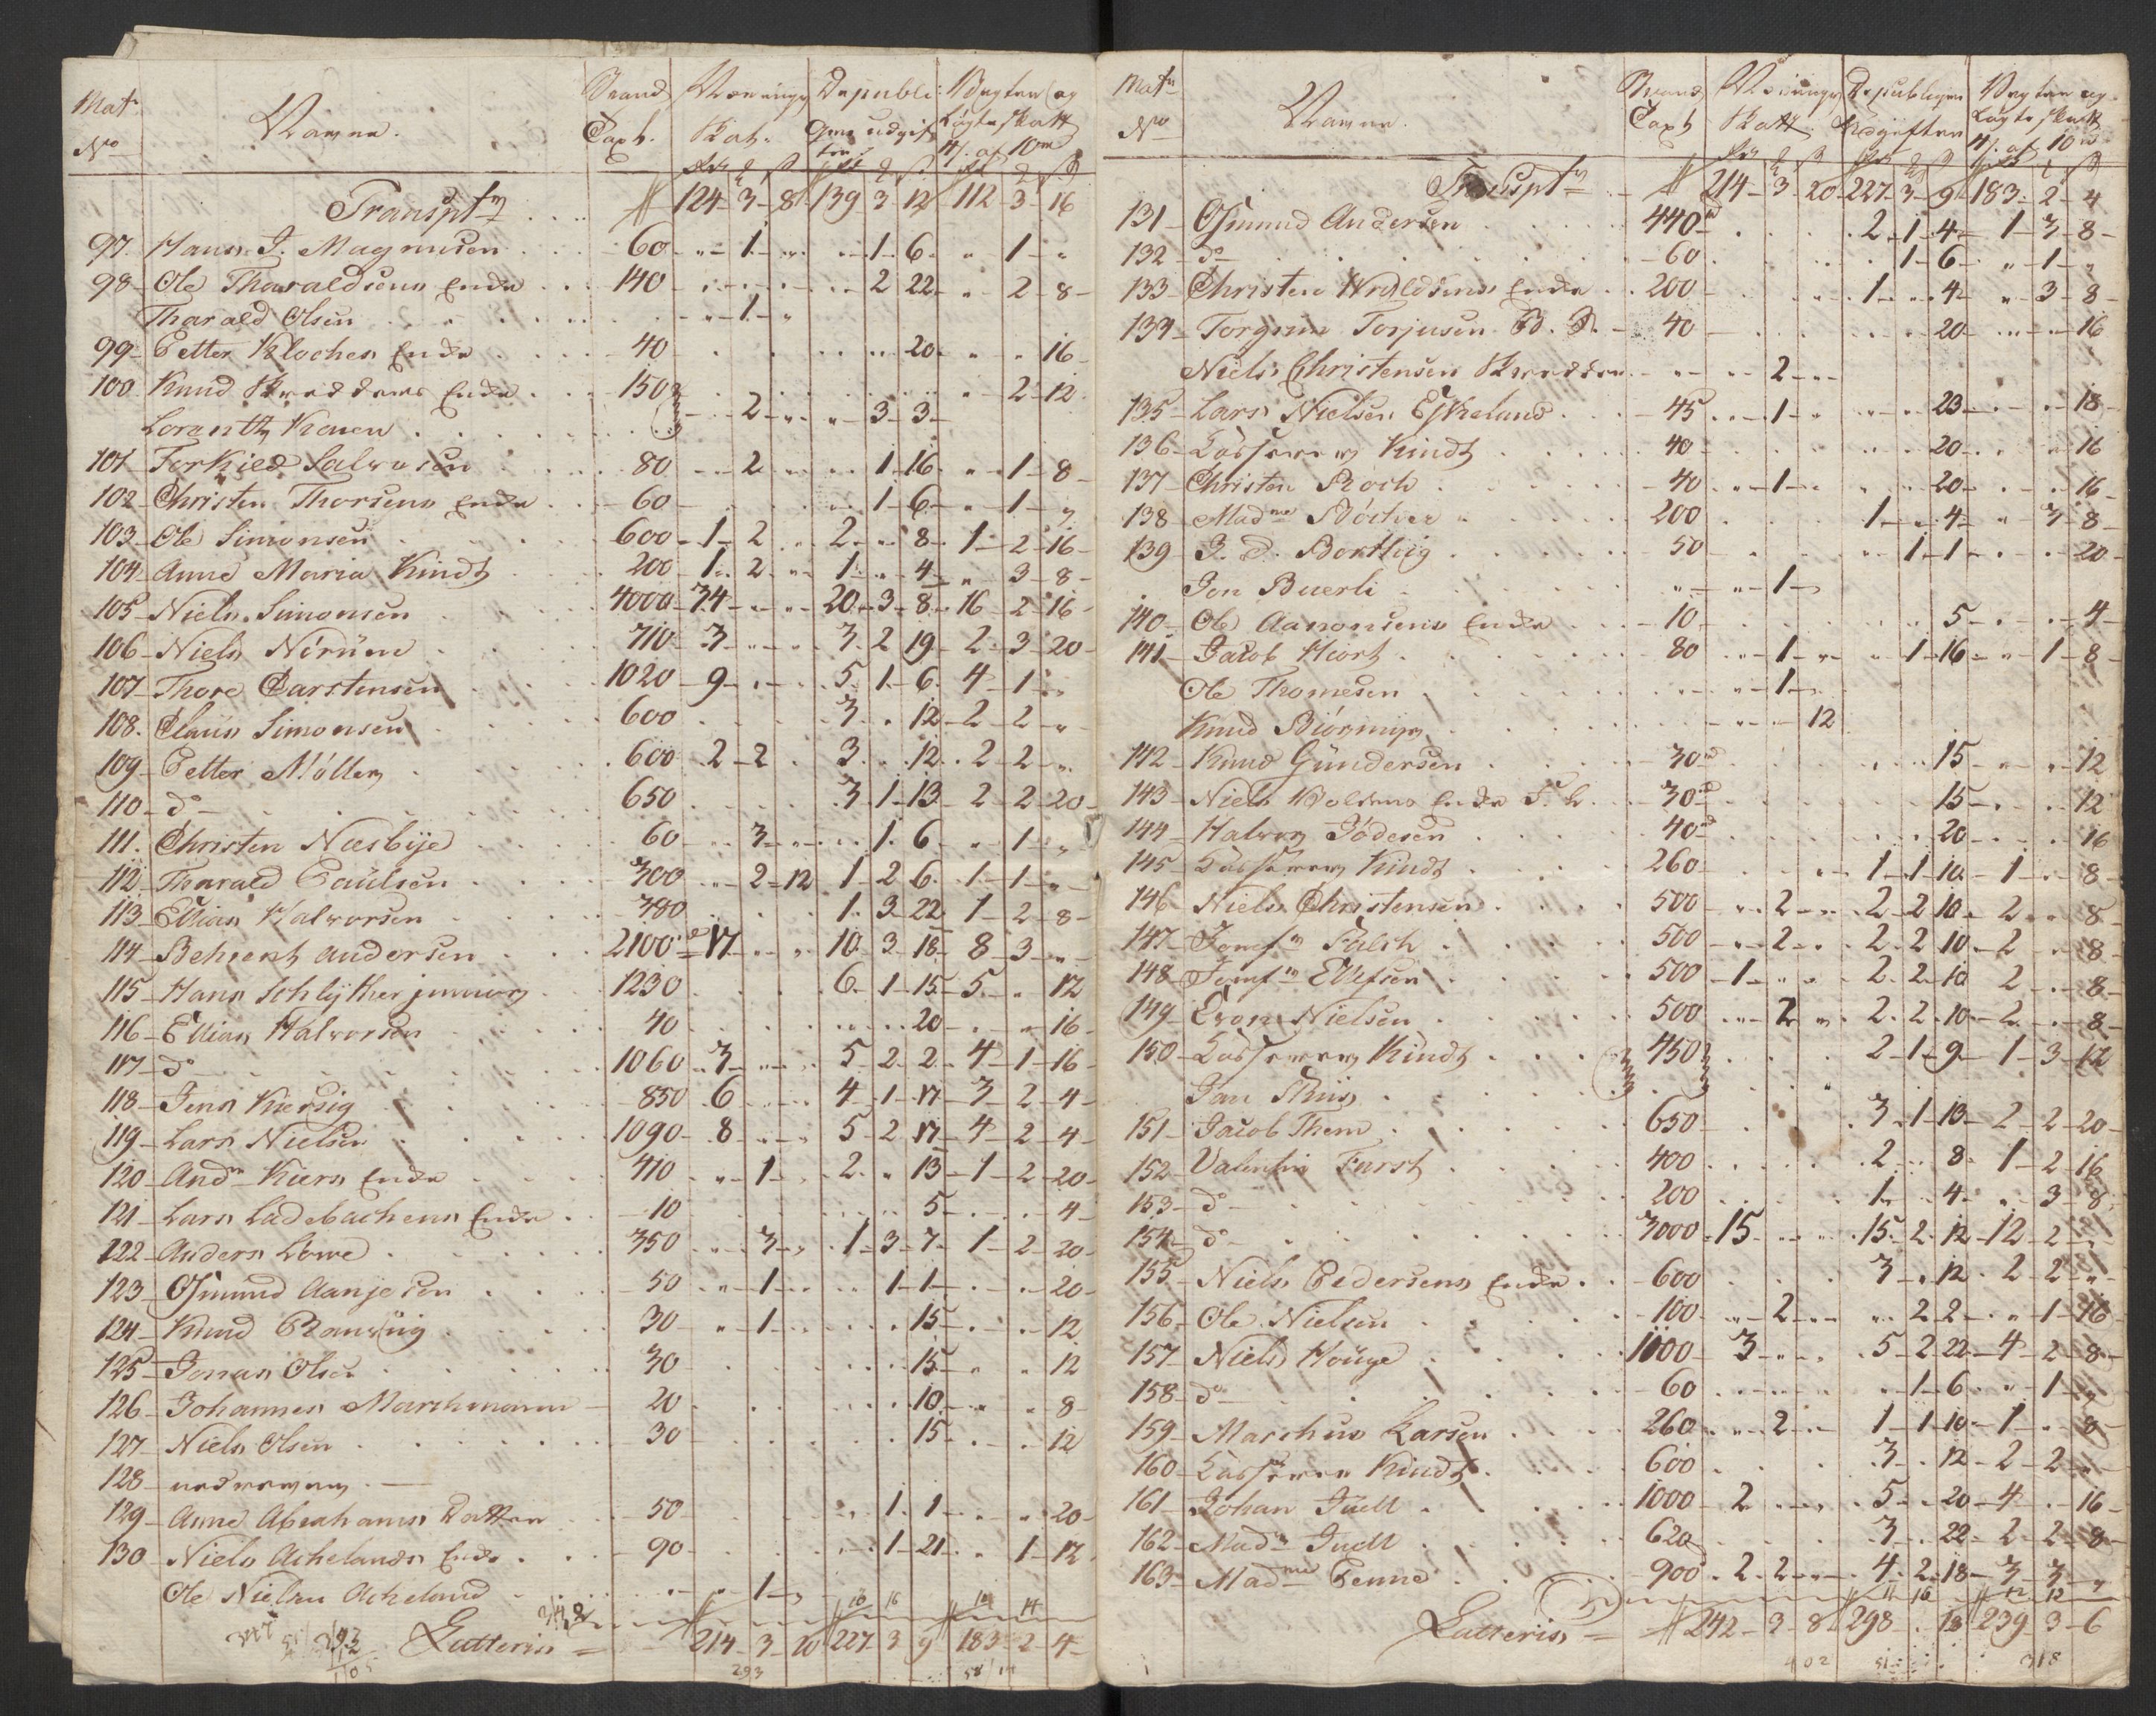 Mat. No Navne. Brand Taxt. Nærings Skat. Republi- Vagten og
qvens udgif- Løgteskatt
ter 4/. af 10rd
Rdr ₰ ß Rd ₰ ß Rd ₰ ß
Transpt. 124-3-8 139 3 12 112-3-16
97. Hans J. Magnusen 60 " 1 " " 1 6 " 1 "
98 Ole Tharaldsens Enke 140 2 22 " 2-8
Tharald Olsen " 1 "
99 Petter Klochers Enke 40 20 " " 16
100 Knud Skredders Enke 150 " 2-12
Lorentz Koren 2 " " 3-3
101 Torkild Salvesen 80 2 " 1-16 " 1-8
102 Christen Thorsens Enke 60 1-6 " 1 "
103 Ole Simonsen 600 1-2 2 " 8 1-2-16
104 Anne Maria Kindt 200 1-2 1 " 4 " 3-8
105 Niels Simonsen 4000 34 20-3-8 16 2-16
106 Niels Nörüm 710 3 3-2-19 2-3-20
107 Thore Carstensen 1020 9 5-1-6 4-1 "
108. Claus Simonsen 600 3 " 12 2-2 "
109 Petter Möller 600 2-2 3 " 12 2-2 "
110 do 650 3-1-13 2-2-20
111. Christen Næsbÿe 60 " 3 1-6 " 1 "
112 Tharald Paulsen 300 " 2-12 1-2-6 1-1 "
113 Ellias Halvorsen 380 1-3-22 1-2-8
114 Behrent Andersen 2100 17 10-3-18 8-3 "
115 Hans Schlÿther junior 1230 6-1-15 5 " 12
116 Ellias Halvorsen 40 20 " 16
117 do 1060 3 5-2-2 4-1-16
118 Jens Kiersig 850 6 4-1-17 3-2-4
119 Lars Nielsen 1090 8 5-2-17 4-2-4
120 Andrs Kiers Enke 410 " 1 2 " 13 1-2-20
121 Lars Ladebachens Enke 10 5 4
122 Anders Löwe 350 " 3 " 1-3-7 1-2-20
123 Osmund Aanjesen 50 " 1 1-1 20
124 Knud Ranwiig 30 " 1 15 12
125 Jonas Olsen 30 15 12
126 Johannes Marchmann 20 10 8
127 Niels Olsen 30 15 12
128 nedreven
129 Anne Abrahams Datter 50 1 1 20
130 Niels Achelands Enke 90 1-21 1-12
Ole Nielsen Acheland 1
Latteris 214-3-20 227 3 9 183-2-4
Mat. No Navne. Brand Taxt Nærings Skatt. Republiqvens Vagten og
Udgifter Løgteskatt
4/. af 10rd
Transpt. 214-3-20 227-3-9 183-2-4
131 Osmund Andersen 440 2-1-4 1-3-8
132 do 60 1-6 " 1 "
133 Christen Wroldsens Enke 200 1 " 4 " 3-8
134 Torgrim Torjusen 40 20 16
Niels Christensen Skredder 2
135 Lars Nielsen Eskeland 45 1 23 18
136 Kindt 40 20 16
137 Christen Roch 40 1 20 16
138 Madme Böcher 200 1 " 4 " 3-8
139 J. D. Bortlig 50 1-1 20
Jon Buerli 1
140 Ole Aanonsens Enke 10 5 4
141 Jacob Hiort 80 1 1-16 1-8
Ole Thomesen 1
Knud Biörnmyr 12
142 Knud Gundersen 30 15 12
143 Niels Enke 30 15 12
144 Halvor Jödesen 40 20 16
145 Kindt 260 1-1-10 1 " 8
146 Niels Christensen 500 2 2-2-10 2 " 8
147 Jomfr Falch 500 2 2-2-10 2 " 8
148 Jomfr Ellefsen 500 1 2-2-10 2 " 8
149 Even Nielsen 500 2 2-2-10 2 " 8
150 Kindt 450 2-1-9 1-3-12
Jan Thiis
151 Jacob Them 650 3-1-13 2-2-20
152 Valentin Furst 400 2 " 8 1-2-16
153 do 200 1 " 4 " 3-8
154 do 3000 15 15-2-12 12-2 "
155 Niels Pedersens Enke 600 3 " 12 2-2 "
156 Ole Nielsen 100 2 2-2 1-16
157 Niels Houge 1100 3 5-2-22 4-2-8
158 do 60 1-6 1 "
159 Marchus Larsen 260 2 1-1-10 1 " 8
160 Kindt 600 3 " 12 2-2 "
161 Johan Juell 1000 2 5 " 20 4 " 16
162 Madm Juell 620 3 " 22 2-2-8
163 Madme Penne 900 2-2 4-2-18 3-3 "
Latteris 242-3-8 298 " 18 239-3-6